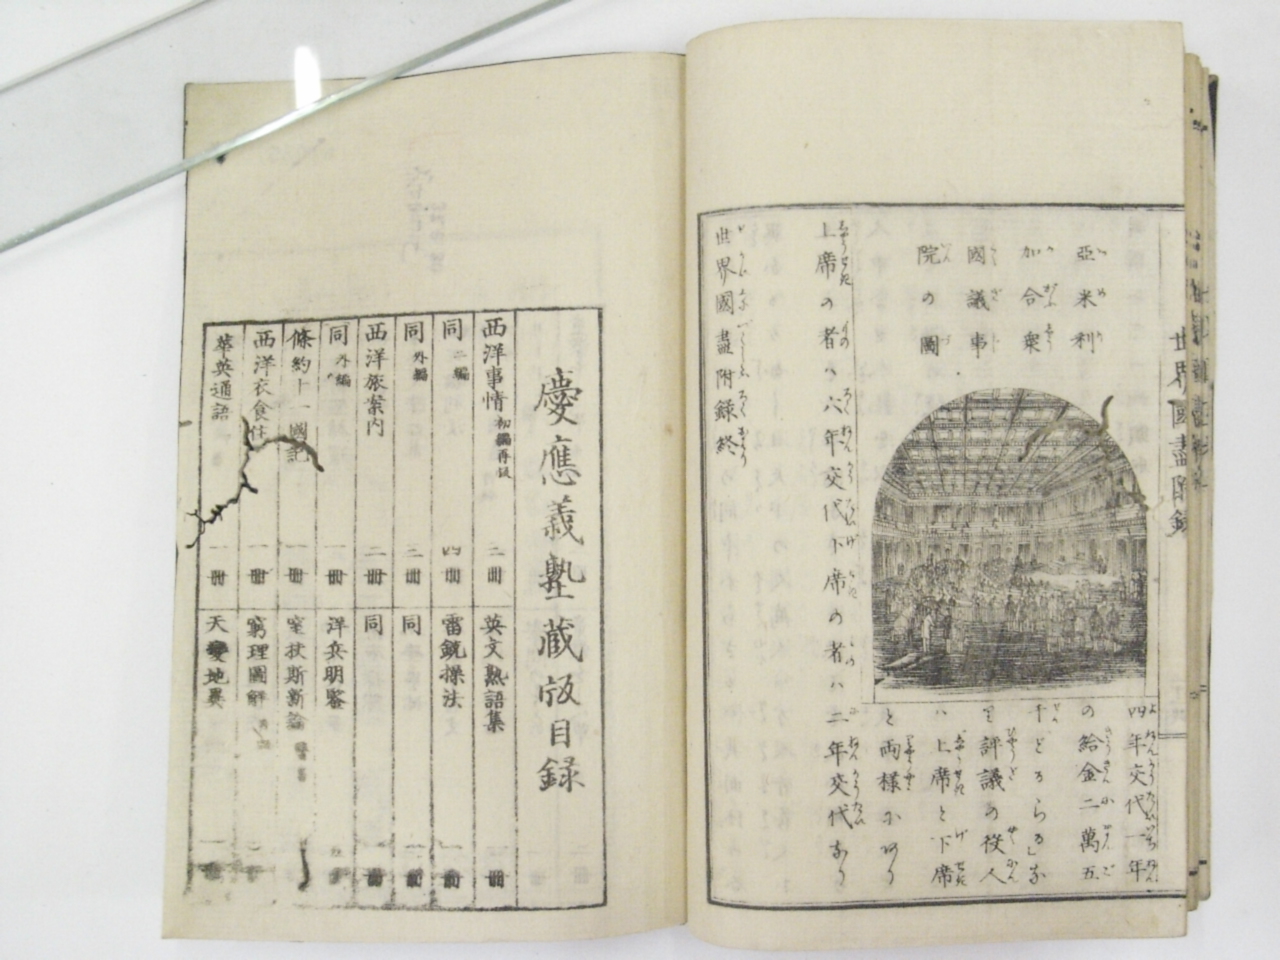 世界國盡附録
亞米利
加合衆
國議事
院の圖
四年交代一年
の給金二萬五
千どるらるな
り評議の役人
ハ上席と下席
と両様にあり
上席の者ハ六年交代下席の者ハ二年交代なり
世界國盡附録終
慶應義塾藏版目録
西洋事情 初編再版 二冊
同 二編 四冊
同 外編 三冊
西洋旅案内 二冊
同 外編
條約十一國記 一冊
西洋衣食住 一冊
華英通語 一冊
英文熟語集 一冊
雷銃操法 一冊
同
同 一冊
洋兵明鑒
窮理圖解
天變地異 一冊